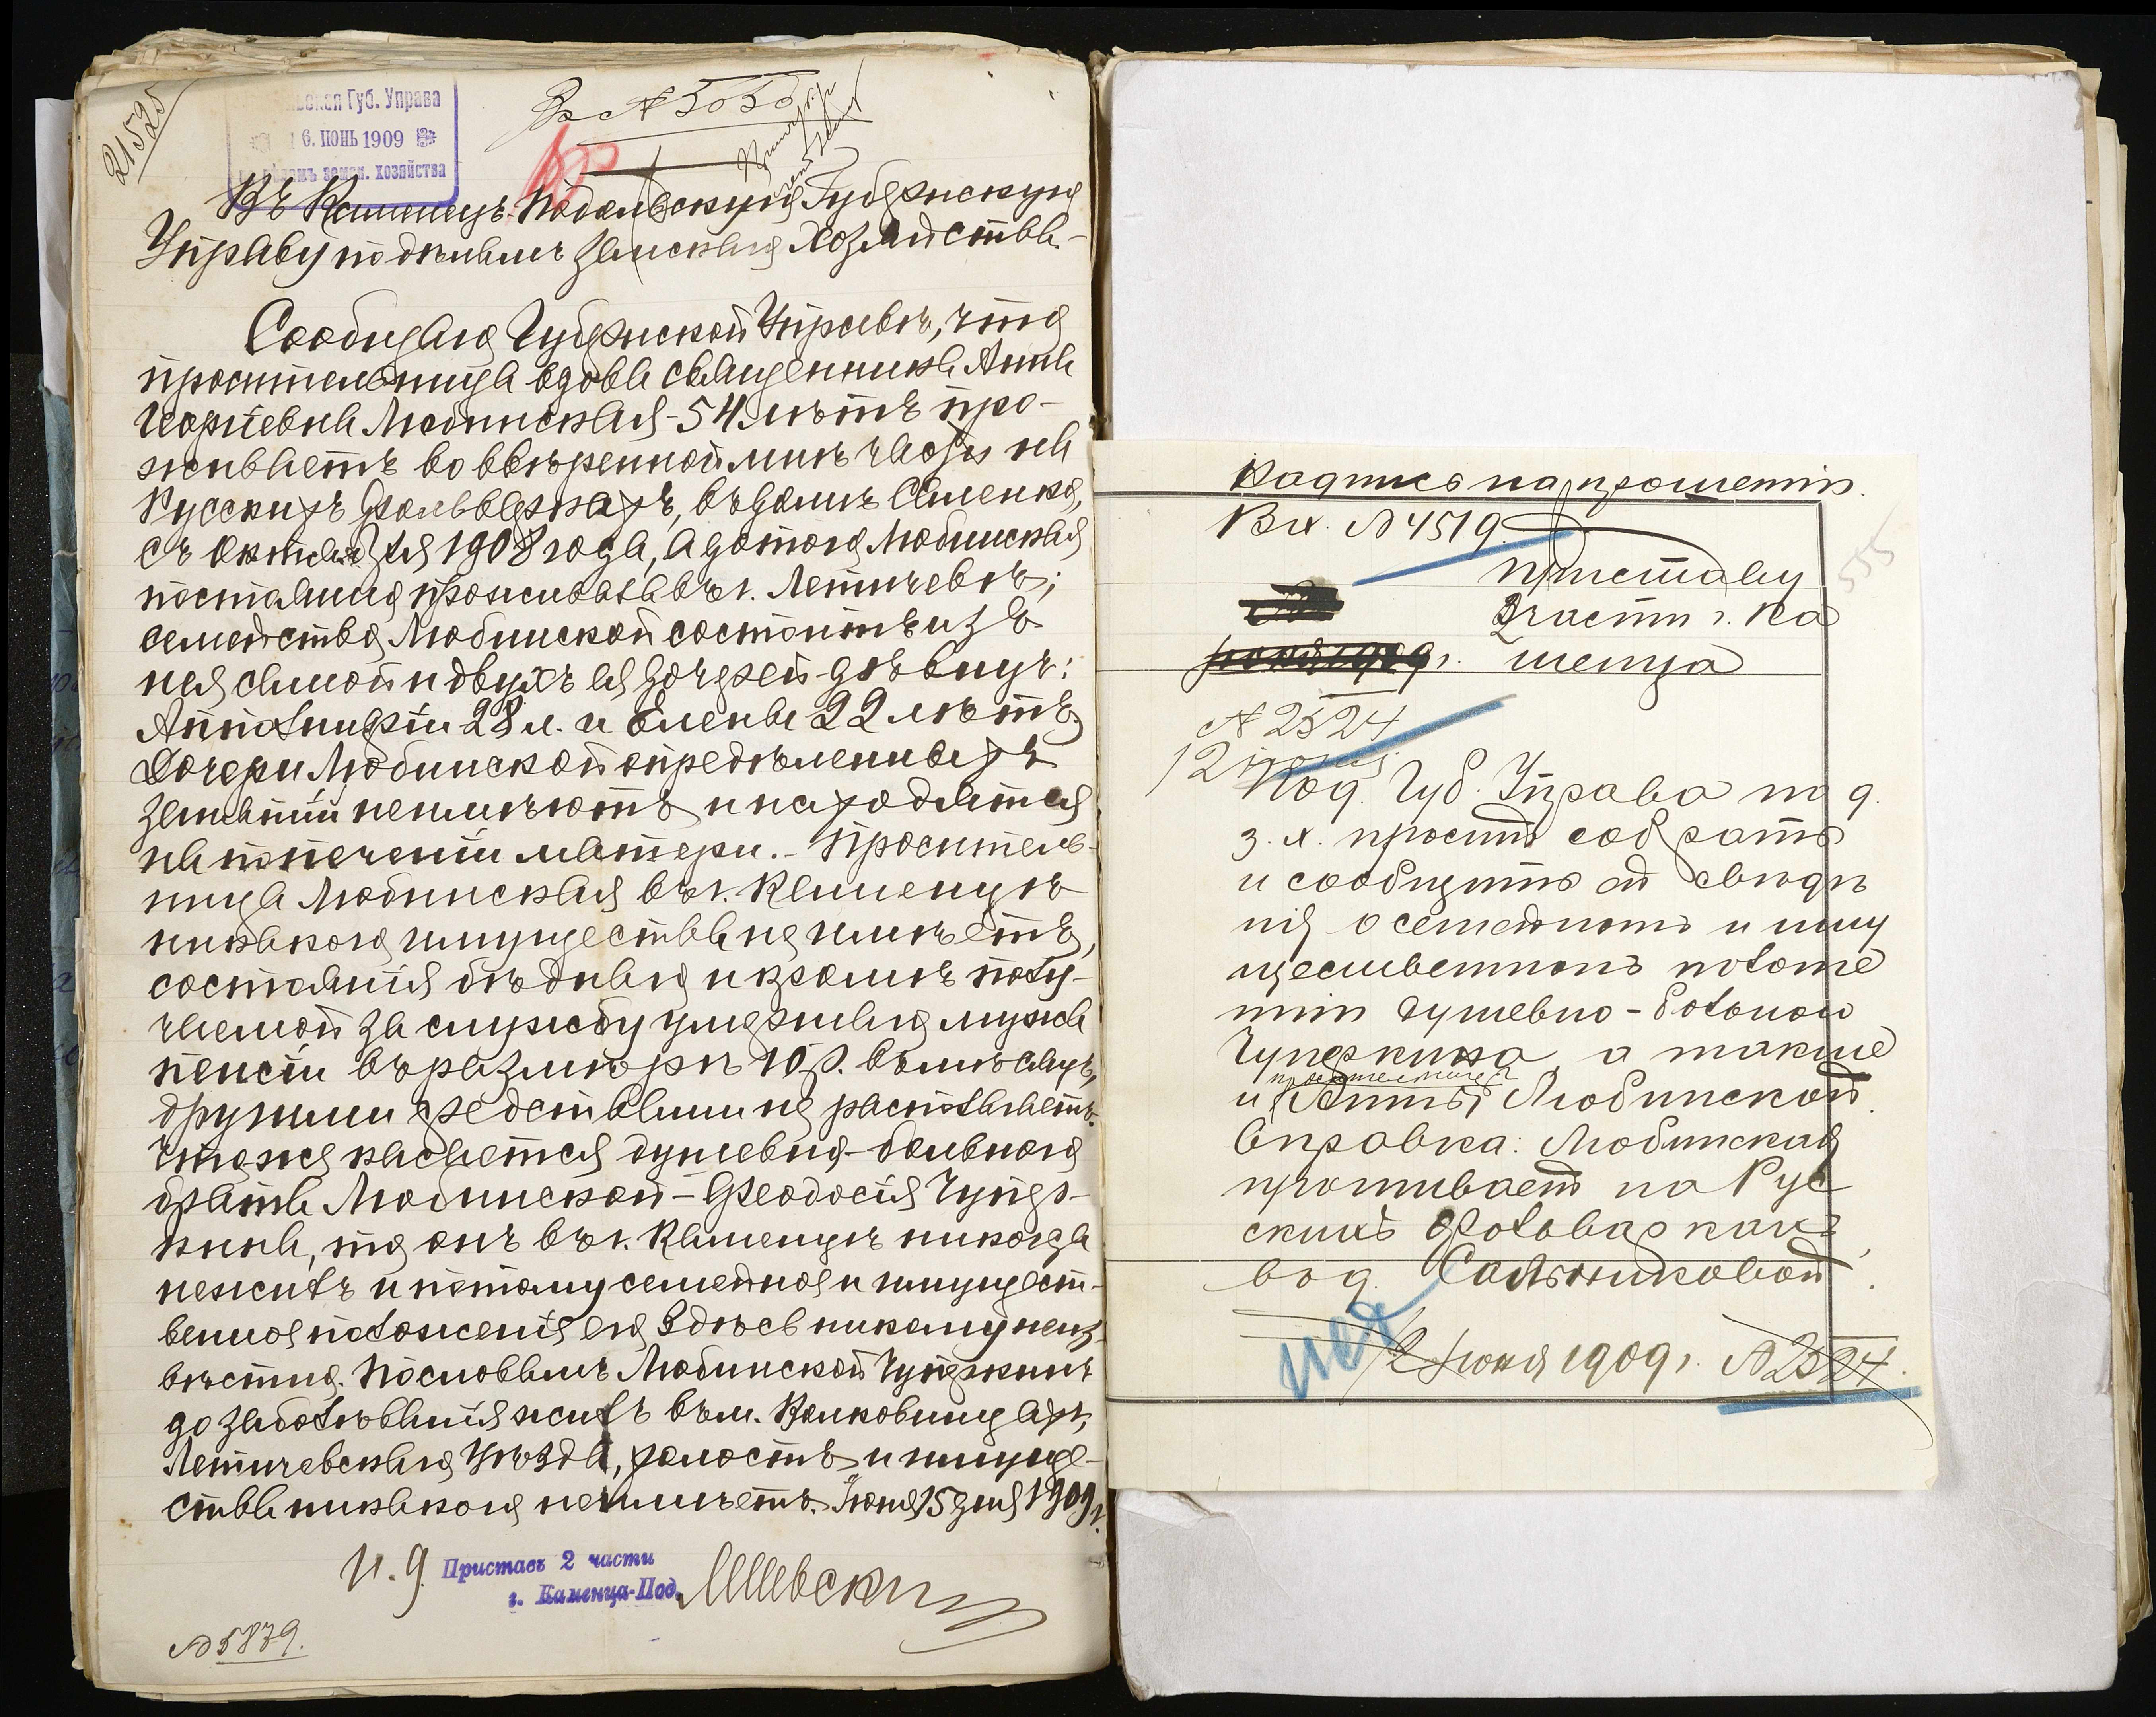 21525
Губ. Управа
6. ІЮНЬ 1909
земск. хозяйства
Вх № 5050
Въ Каменецъ-Подольскую Губернскую
Управу по дѣламъ Земскаго Хозяйства.-
Сообщаю Губернской Управѣ, что
просительница вдова священника Анна
Георгіевна Любинская - 54 лѣтъ про-
живаетъ во ввѣренной мнѣ части на
Русскихъ Фольваркахъ, въ домѣ Саленко,
съ Октября 1908 года, а до того Любинская
постоянно проживала въ г. Летичевѣ;
семейство Любинской состоитъ изъ
нея самой и двухъ ея дочерей-дѣвицъ:
Апполинаріи 28 л. и Елены 22 лѣтъ.
Дочери Любинской опредѣленныхъ
занятій не имѣютъ и находятся
на попеченіи матери.- Проситель-
ница Любинская въ г. Каменцѣ
никакого имущества не имѣетъ,
состоянія бѣднаго и кромѣ полу-
чаемой за службу умершаго мужа
пенсіи въ размѣрѣ 10 р. въ мѣсяцъ,
другими средствами не располагаетъ.
Что же касается душевно-больного
брата Любинской - Феодосія Чупер-
кина, то онъ въ г. Каменцѣ никогда
не жилъ и потому семейное и имущест-
венное положенія его здѣсь никому неиз-
вѣстно. По словамъ Любинской Чуперкинъ
до заболѣванія жилъ въ м. Волковинцахъ,
Летичевскаго Уѣзда, холостъ и имуще-
ства никакого не имѣетъ. Іюня 15 дня 1909 г.
И. д. Приставъ 2 части
г. Каменца-Под.
№ 5879.
Надпись на прошеніи.
Вх. № 4519
555
Приставу
2 части г. Ка
1909 г. менца
№ 2524
12 іюня
Под. Губ. Управа по д.
з. х. проситъ собрать
и сообщить ей свѣдѣ
нія о семейномъ и иму
щественномъ положе
ніи душевно-больного
Чуперкина, а также
просительницы
и Анны Любинской.
Справка: Любинская
проживаетъ на Рус
скихъ Фольваркахъ,
в д. Сальниковой.
12 іюня 1909 г. № 2524.